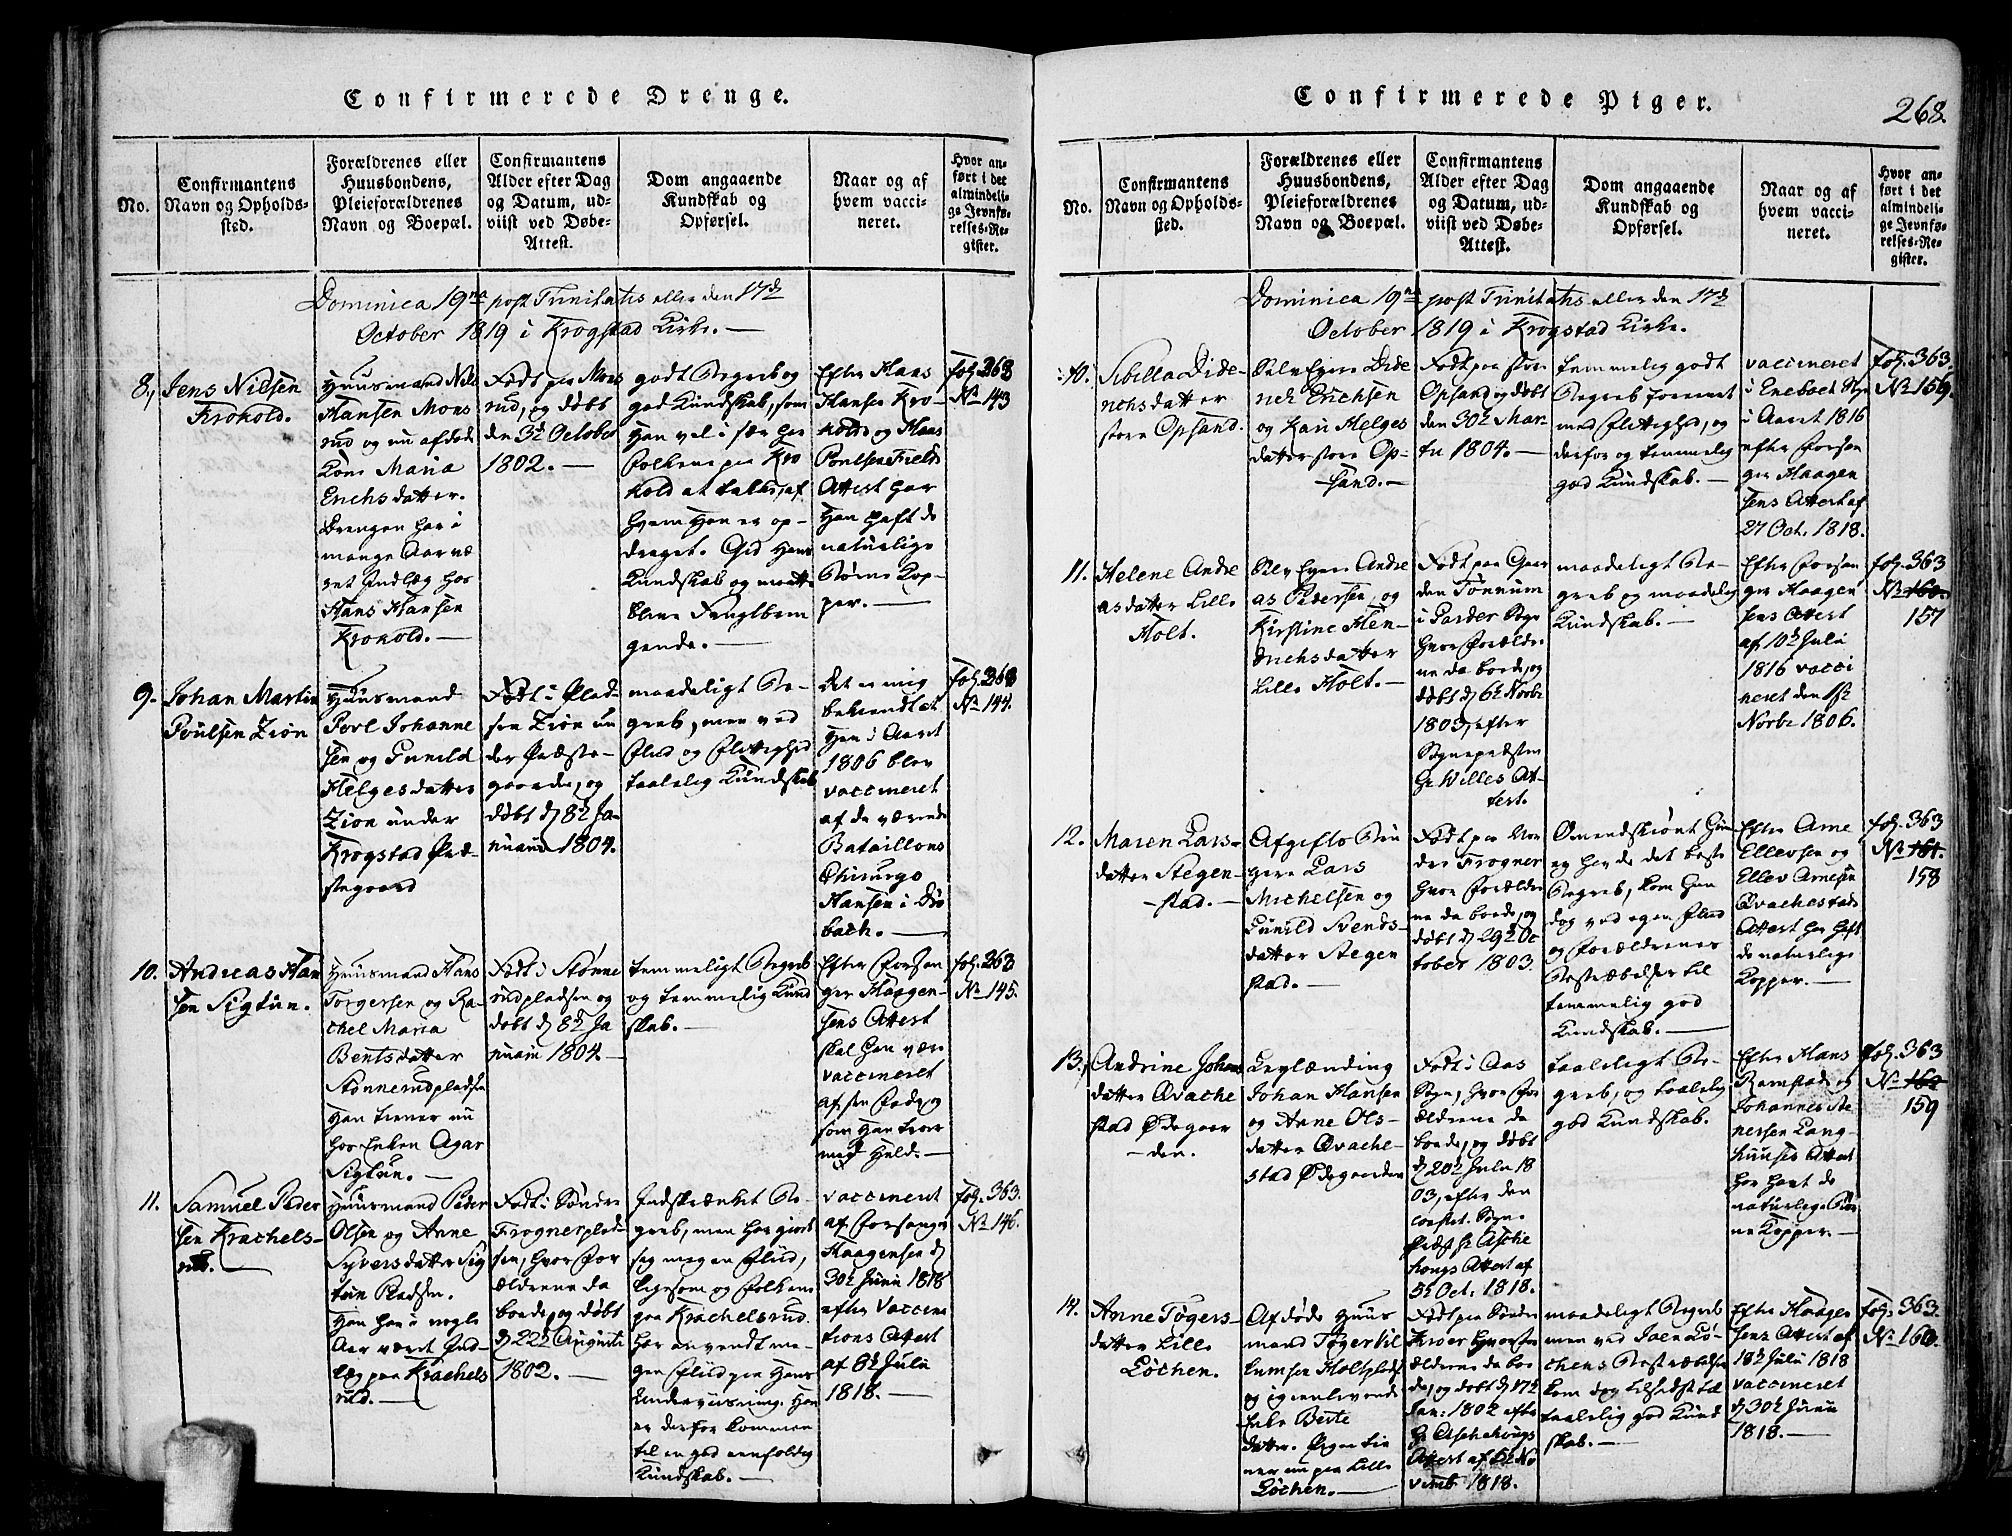 Confirmerede Drenge.
No.
Confirmantens
Navn og Opholds-
sted.
Forældrenes eller
Huusbondens,
Pleieforældrenes
Navn og Boepæl.
Confirmantens
Alder efter Dag
og Datum, ud-
viist ved Døbe-
Attest.
Dom angaaende
Kundskab og
Opførsel.
Naar og af
hvem vacci-
neret.
Hvor an-
ført i det
almindeli-
ge Jevnfø-
relses-Re-
gister.
Dominica 19na post Trinitatis eller den 17de
October 1819 i Krogstad Kirke. —
8.,
Jens Nilsen
Krokold.
Huusmand Nils
Hansen Mons
rud og nu afdøde
Kone Maria
Erichsdatter.
Drengen har i
mange Aar væ
ret Indlæg hos
Hans Hansen
Krokold. —
Født paa Mons
rud, og døbt
den 3de October
1802. —
godt Begreb og
god Kundskab, som
Han vel i sær har
Folkene paa Kro
kold at takke, af
hvem Han er op-
draget. Gid Hans
Kundskab og maatte
blive Frugtbrin
gende. —
Efter Hans
Hansen Kro-
kolds og Hans
Poulsen Fields
Attest har
Han haft de
naturlige
Børne Kop-
per. —
fol. 363
No 143
9.
Johan Martin
Poulsen Zion
Huusmand
Povl Johanne
sen og Gunild
Helgesdatter
Zion under
Krogstad Præ-
stegaard
Født i Plad-
sen Zion un
der Præste-
gaarden, og
døbt d 8de Ja-
nuarii 1804.
maadeligt Be-
greb, men ved
Flid og Flittighed
taalelig Kundskab
Det er mig
bekiendt at
Han i Aaret
1806 blev
vaccineret
af da værende
Bataillons
Chirurgo
Hansen i Drø
bach. —
fol. 363
No 144.
10.
Andreas Han
sen Sigtun.
Huusmand Hans
Torgersen og Ra-
chel Maria
Bentsdatter
Stønnerudpladsen
Han tiener nu
hos Enken Agar
Sigtun. —
Født i Stønne
rudpladsen og
døbt d 8de Ja
nuarii 1804. —
temmeligt Begreb
og temmelig Kund
skab. —
Efter Forsan
ger Haagen-
sens Attest
skal Han være
vaccineret
af sin Fader, og
som Han troer
med Held. —
fol. 363
No 145.
11.
Samuel Peder
sen Krachels-
rud. —
Huusmand Peder
Olsen og Anne
Syversdatter Sig
tun Pladsen.
Han har i nogle
Aar været Ind-
læg paa Krachels
rud. —
Født i Søndre
Frognerplad-
sen, hvor For
ældrene da
boede, og døbt
d 22de Augusti
1802. —
Indskrænket Be-
greb, men har giort
sig megen Flid,
ligesom og Folkene
paa Krachelsrud.
har anvendt me-
gen Flid paa Hans
Underviisning. Han
er derfor kommen
til en god eenfoldig
Kundskab. —
vaccineret
af Forsanger
Haagensen d
30te Junii 1818
efter Vaccina
tions Attest
af 8de Julii
1818. —
fol. 363.
No 146.
Confirmerede Piger.
268.
No.
Confirmantens
Navn og Opholds-
sted.
Forældrenes eller
Huusbondens,
Pleieforældrenes
Navn og Boepæl.
Confirmantens
Alder efter Dag
og Datum, ud-
viist ved Døbe-
Attest.
Dom angaaende
Kundskab og
Opførsel.
Naar og af
hvem vacci-
neret.
Hvor an-
ført i det
almindeli-
ge Jevnfø-
relses-Re-
gister.
Dominica 19na post Trinitatis eller den 17de
October 1819 i Krogstad Kirke.
10.
Sibilla Dide-
richsdatter
store Opsand.
Selv Eger Dide
rich Erichsen
og Kari Helges
datter store Op-
sand. —
Født paa store
Opsand og døbt
den 30te Mar-
tii 1804. —
temmelig godt
Begreb forenet
med Flittighed, og
derfor og temmelig
god Kundskab. —
vaccineret
i Enebach
i Aaret 1816
efter Forsan
ger Haagen
sens Attest af
27 Oct. 1818.
fol. 363,
No 156.
11.
Helene Andre
asdatter Lille
Holt.
Selv Eger Andre
as Pedersen, og
Kirstine Hen-
drichsdatter
Lille Holt. —
Født paa Gaar
den Tønnum
i Garder Sogn
hvor Forældre
ne da boede, og
døbt d 6te Novbr
1803, efter
Sognepræsten
Hr. Willes At-
test.
maadeligt Be-
greb og maadelig
Kundskab. —
Efter Forsan
ger Haagen
sens Attest
af 10de Julii
1816 vacci
neret den 1ste
Novbr 1806.
fol. 363
No 160.
157
12.
Maren Lars-
datter Stegen-
stad. —
Afgifts Bru
gere Lars
Michelsen og
Gunild Svends-
datter Stegen
stad. —
Født paa Nor
dre Frogner
hvor Forældre
ne da boede, og
døbt d 29de Oc
tober 1803.
Omendskiønt Hun
ey havde det beste
Begreb, kom Hun
dog ved egen Flid
og Forældrenes
Bestræbelser til
temmelig god
Kundskab. —
Efter Arne
Ellevsen og
Ellev Arnesen
Qvachestads
Attest har haft
de naturlige
Kopper. —
fol. 363
No 161.
158
13.,
Andrine Johans
datter Qvache
stad Ødegaar
den.
Leylænding
Johan Hansen
og Anne Ols-
datter Qvache-
stad Ødegaarden
Født i Aas
Sogn, hvor For
ældrene da
boede, og døbt
d 20de Julii 18
03, efter den
const. Sogne
Præst Hr Asche
hougs Attest af
5te Oct. 1818.
taaleligt Be-
greb, og taalelig
god Kundskab.
Efter Hans
Ramstads og
Johannes
Lang-
huuses Attest
har havt de
naturlige Bør
ne Kopper. —
fol. 363
No 162
159
14.
Anne Tøgers-
datter Lille
Løchen.
Afdøde Huus
mand Tøger Vil
lumsen Holtplads
og igienlevende
Enke Berte
datter. Pigen tie
ner nu paa Lille
Løchen. —
Født paa Søndre
Kroer hvor For
ældrene da boe
de, og døbt d 17de
Jan: 1802 efter
Hr Aschehougs
Attest af 6te No
vemb 1818.
maadeligt Begreb
men ved Lø-
chens Bestræbelser
kom dog tilsidst til
taalelig god Kund
skab. —
Efter Haagen
sens Attest af
18de Julii 1818
vaccineret
d 30te Junii
1818. —
fol. 363.
No 160.